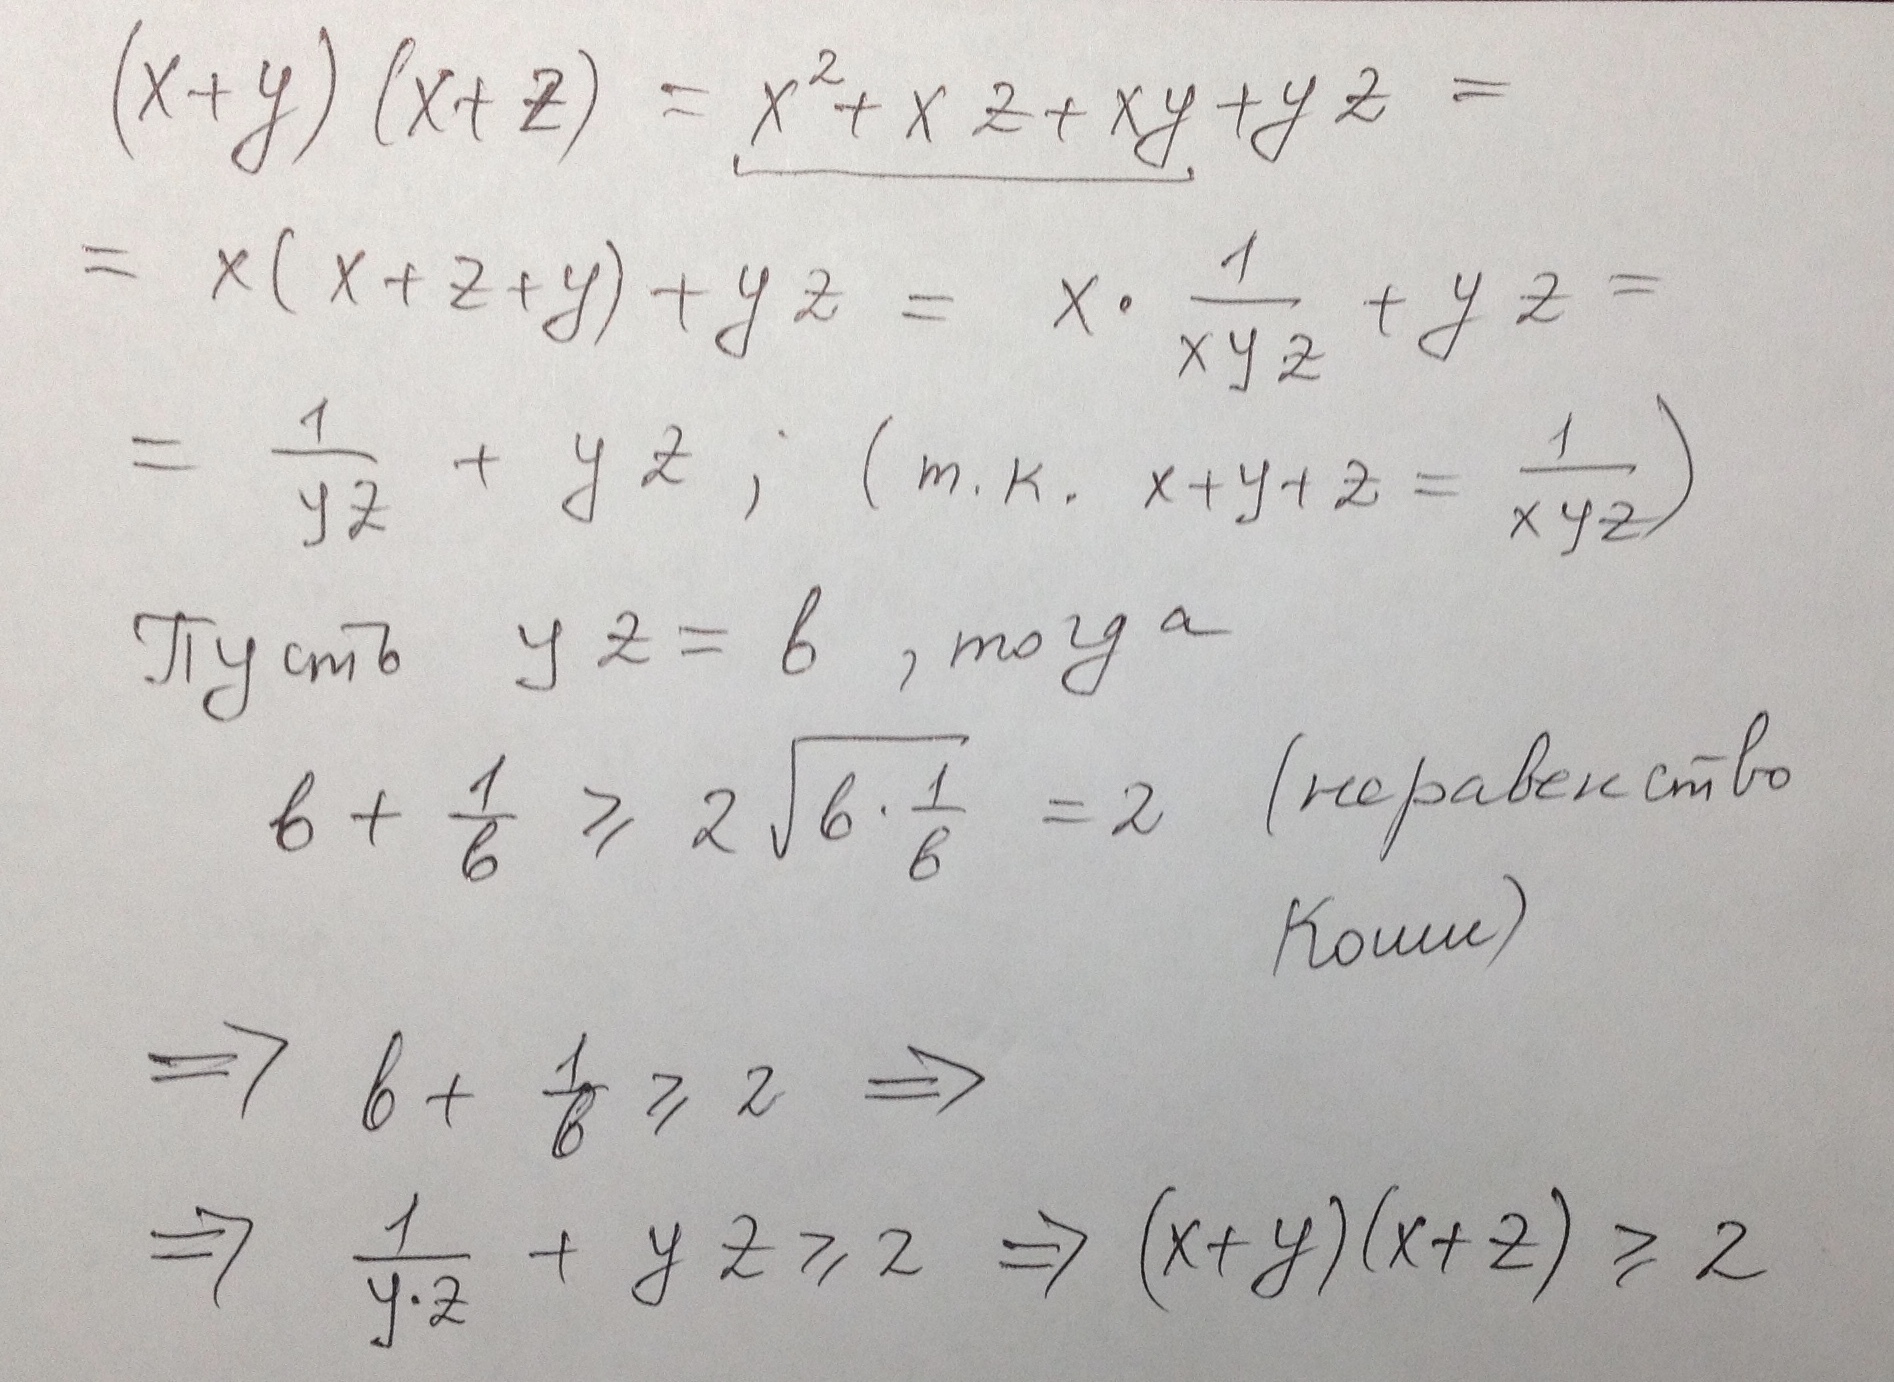 (x+y)(x+z) = x²+xz+xy+yz =
= x(x+z+y)+yz = x·1/xyz + yz =
= 1/yz + yz; (т.к. x+y+z = 1/xyz)
Пусть yz = b, тогда
b + 1/b ⩾ 2√(b·1/b) = 2 (неравенство
Коши)
=> b + 1/b ⩾ 2 =>
=> 1/y·z + yz ⩾ 2 => (x+y)(x+z) ⩾ 2